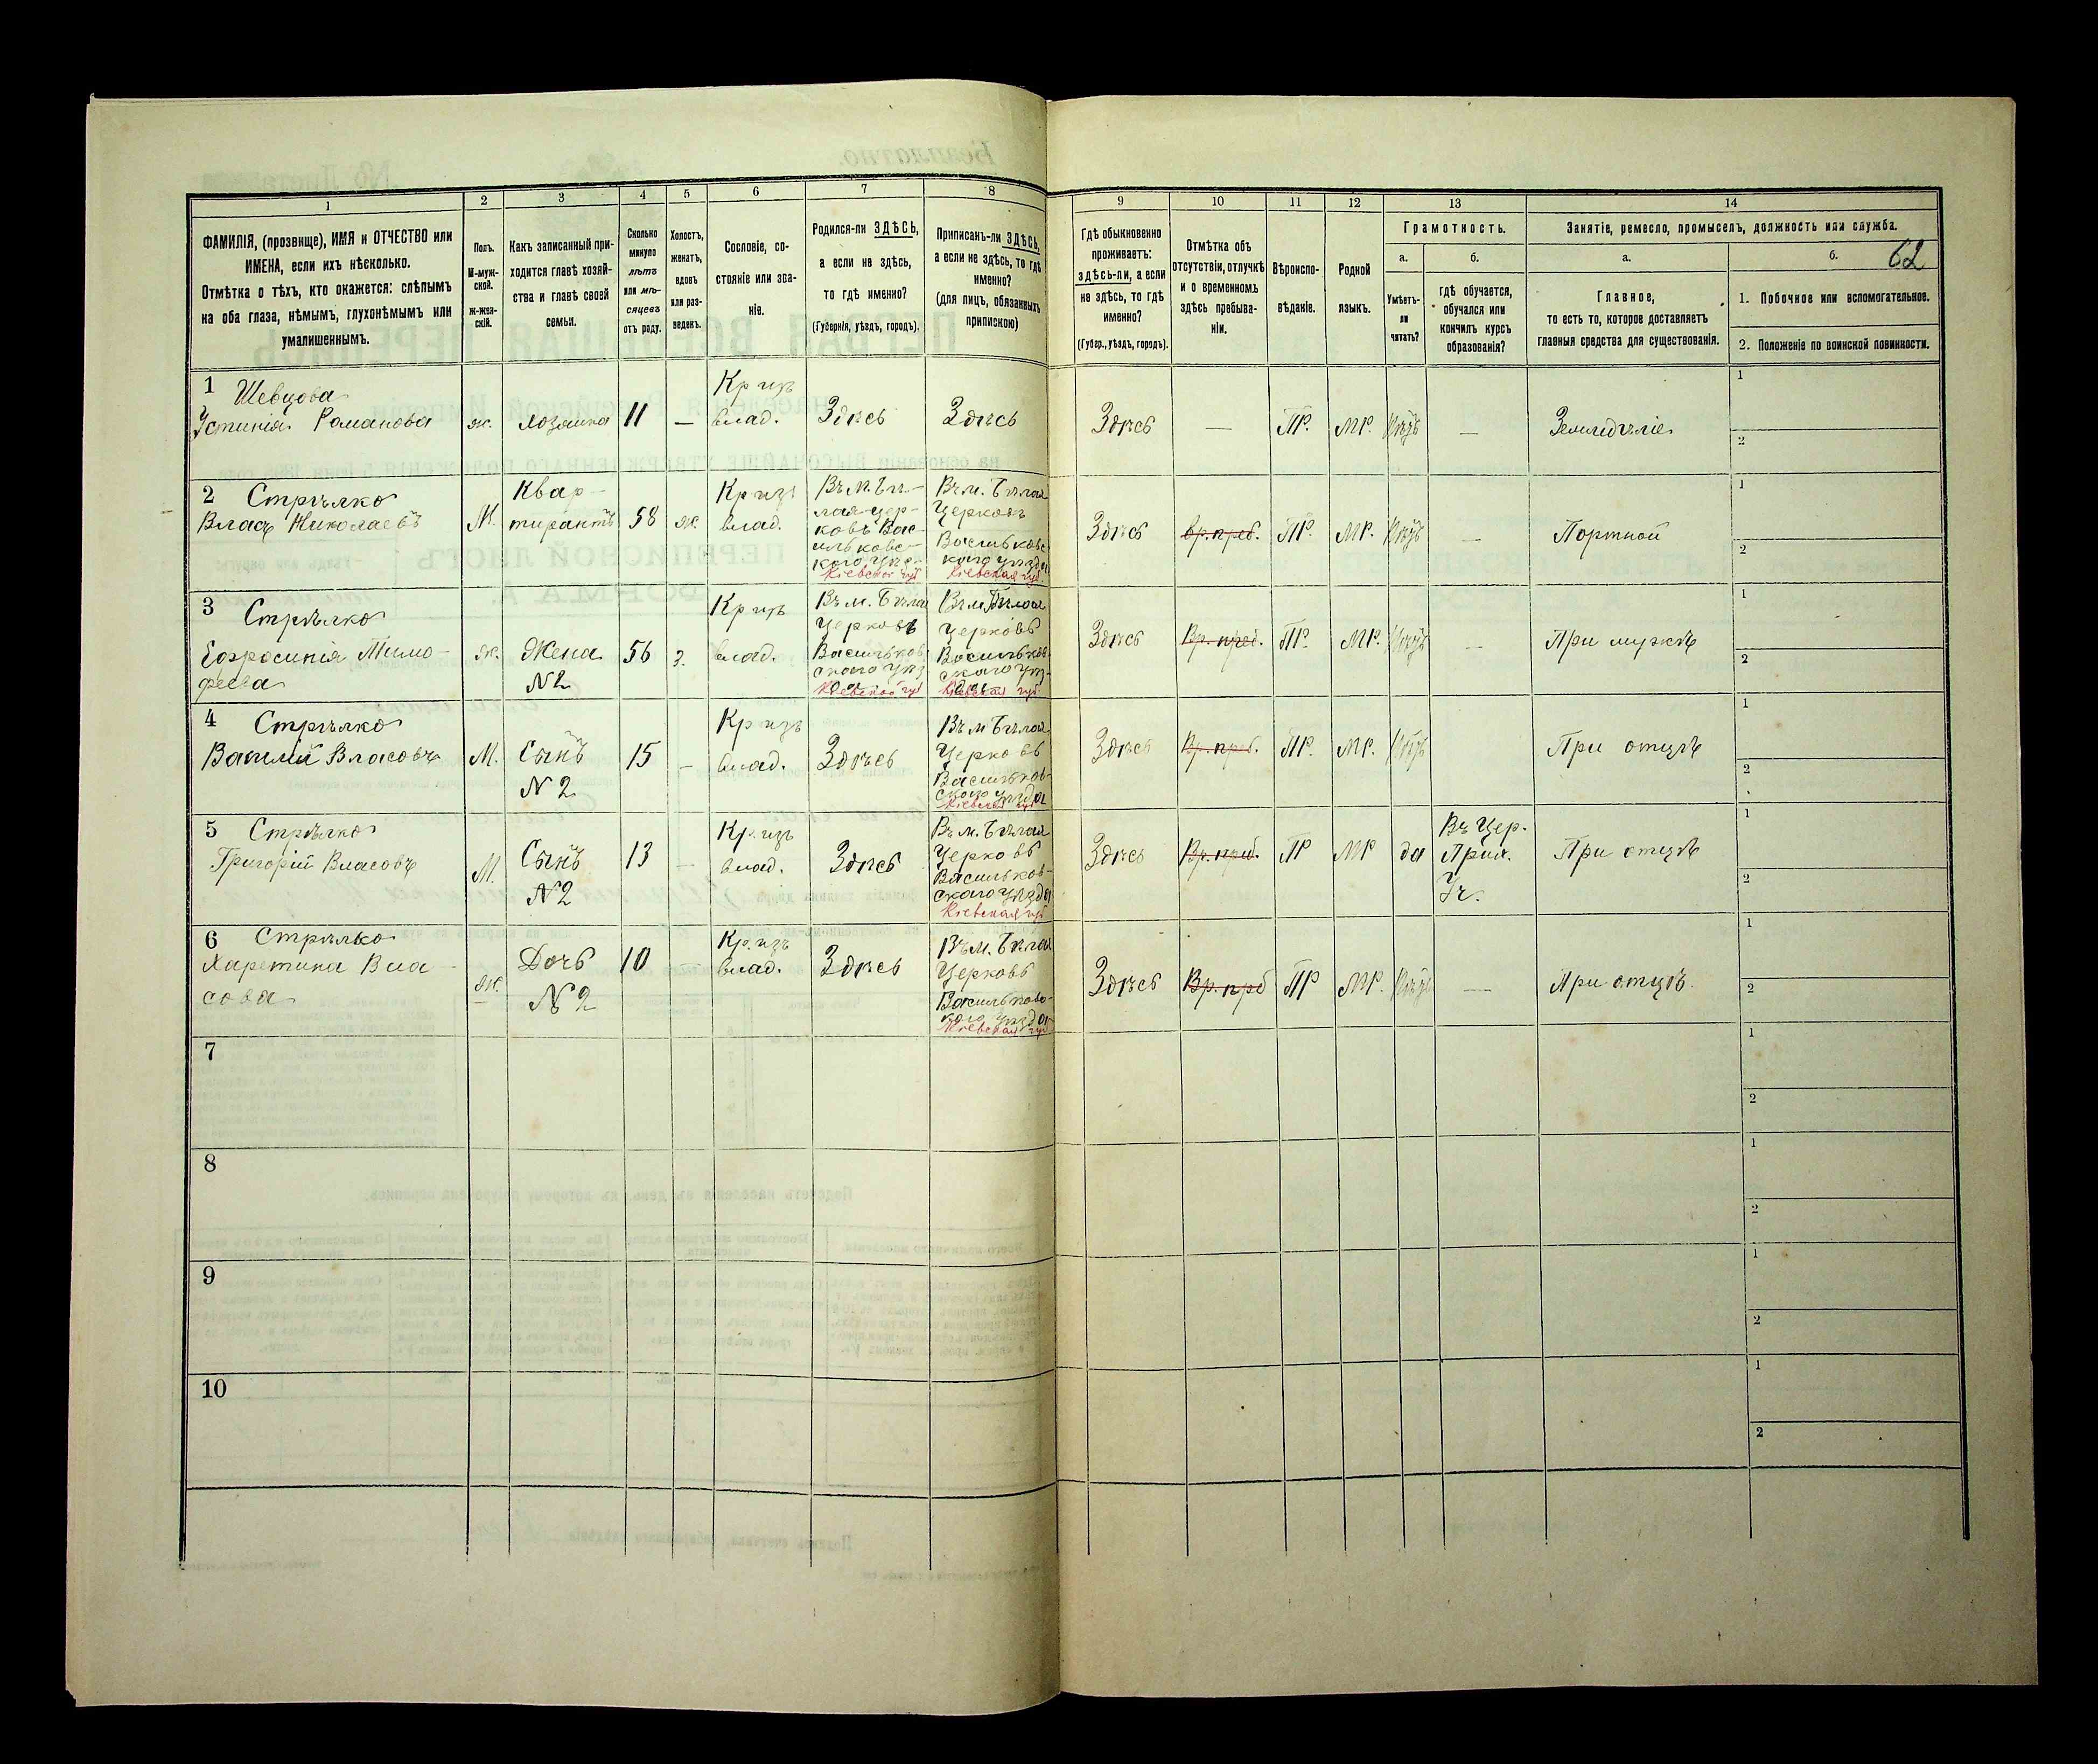 62
1 2 3 4 5 6 7 8 9 10 11 12 13 14
ФАМИЛІЯ, (прозвище), ИМЯ и ОТЧЕСТВО или
ИМЕНА, если ихъ нѣсколько.
Отмѣтка о тѣхъ, кто окажется: слѣпымъ
на оба глаза, нѣмымъ, глухонѣмымъ или
умалишеннымъ.
Полъ.
М-муж-
ской.
ж-жен-
скій.
Какъ записанный при-
ходится главѣ хозяй-
ства и главѣ своей
семьи.
Сколько
минуло
лѣтъ
или мѣ-
сяцевъ
отъ роду.
Холостъ,
женатъ,
вдовъ
или раз-
веденъ.
Сословіе, со-
стояніе или зва-
ніе.
Родился-ли ЗДѢСЬ,
а если не здѣсь,
то гдѣ именно?
(Губернія, уѣздъ, городъ).
Приписанъ-ли ЗДѢСЬ,
а если не здѣсь, то гдѣ
именно?
(для лицъ, обязанныхъ
припискою)
Гдѣ обыкновенно
проживаетъ:
здѣсь-ли, а если
не здѣсь, то гдѣ
именно?
(Губер., уѣздъ, городъ).
Отмѣтка объ
отсутствіи, отлучкѣ
и о временномъ
здѣсь пребыва-
ніи.
Вѣроиспо-
вѣданіе.
Родной
языкъ.
Грамотность.
а.
Умѣетъ-
ли
читать?
б.
гдѣ обучается,
обучался или
кончилъ курсъ
образованія?
Занятіе, ремесло, промыселъ, должность или служба.
а.
Главное,
то есть то, которое доставляетъ
главныя средства для существованія.
б.
1. Побочное или вспомогательное.
2. Положеніе по воинской повинности.
1 Шевцова
Устинія Романова
ж.
хозяйка
11
—
Кр изъ
влад.
Здѣсь
Здѣсь
Здѣсь
—
Пр.
МР.
—
Земледѣліе
1
2
2 Стрѣлко
Власъ Николаевъ
М.
Квар-
тирантъ
58
ж.
Кр изъ
влад.
Въ м. Бѣ-
лая-Цер-
ковь Вас-
ильковс-
кого уѣз-
Кіевской губ
Въ м. Бѣлая
Церковь
Васильковс
кого уѣзда
Кіевская губ
Здѣсь
Вр. преб.
ПР.
МР.
—
Портной
1
2
3 Стрѣлко
Евфросинія Тимо-
феева
ж.
Жена
N2
56
з.
Кр изъ
влад.
Въ м. Бѣла
Церковь
Васильков
ского уѣз
да
Кіевской губ
Въ м. Бѣлая
Церковь
Васильков
ского уѣз-
да
Кіевская губ
Здѣсь
Вр. преб.
ПР.
МР.
—
При мужѣ
1
2
4 Стрѣлко
Василій Власовъ
М.
Сынъ
N2
15
—
Кр изъ
влад.
Здѣсь
Въ м Бѣлая
Церковь
Васильков-
ского уѣзда
Кіевская губ
Здѣсь
Вр. преб.
ПР.
МР.
При отцѣ
1
2
5 Стрѣлко
Григорій Власовъ
М.
Сынъ
N2
13
—
Кр. изъ
влад.
Здѣсь
Въ м. Бѣлая
Церковь
Васильков-
ского уѣзда
Кіевская губ
Здѣсь
Вр. преб.
ПР
МР
да
Въ Цер.
Прих.
Уч.
При отцѣ
1
2
6 Стрѣлко
Харетина Вла-
сова
Ж.
Дочь
N2
10
—
Кр. изъ
влад.
Здѣсь
Въ м. Бѣлая
Церковь
Васильковс-
кого уѣзда
Кіевская губ
Здѣсь
Вр. прб
ПР
МР.
—
При отцѣ
1
2
7
1
2
8
1
2
9
1
2
10
1
2